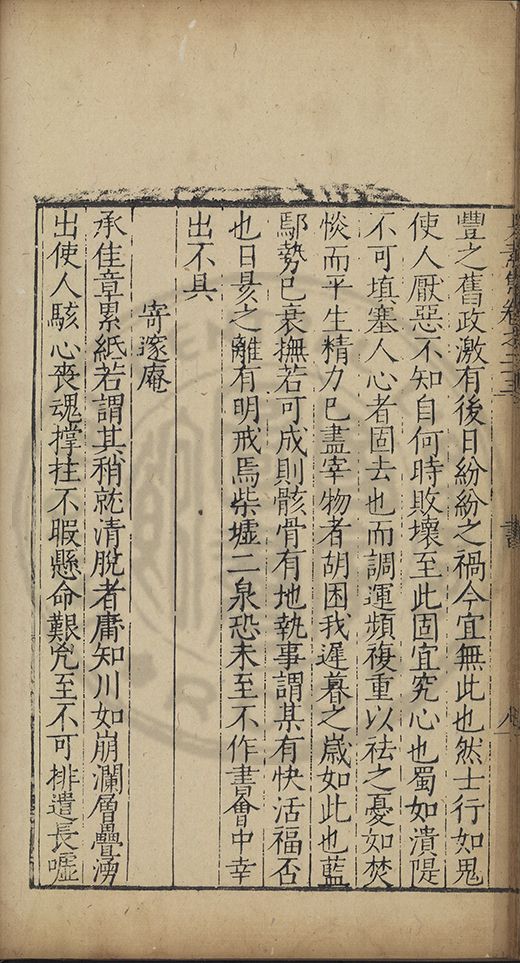 豐之舊政激有後日紛紛之禍今宜無此也然士行如鬼
使人厭惡不知自何時敗壞至此固宜究心也蜀如潰隄
不可填塞人心者固去也而調運頻複重以祛之憂如焚
惔而平生精力巳盡宰物者胡困我遲暮之歲如此也藍
鄢勢巳衰撫若可成則骸骨有地執事謂某有快活福否
也日昃之離有明戒焉柴墟二泉恐未至不作書會中幸
出不具
寄邃庵
承佳章累紙若謂其稍就清脫者庸知川如崩瀾層疊湧
出使人駭心喪魂撑拄不暇懸命艱兇至不可排遣長噓